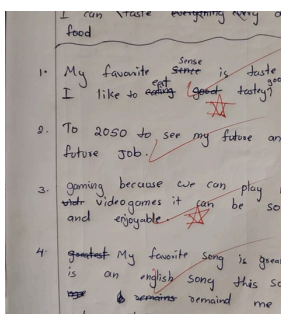 I can taste everything very
food
1. My favorite sense is taste
I like to eat good tastey?
2. To 2050 to see my future an
future job.
3. gaming because we can play
videogames it can be so
and enjoyable.
4. My favorite song is grea
is an english song this so
remains remaind me